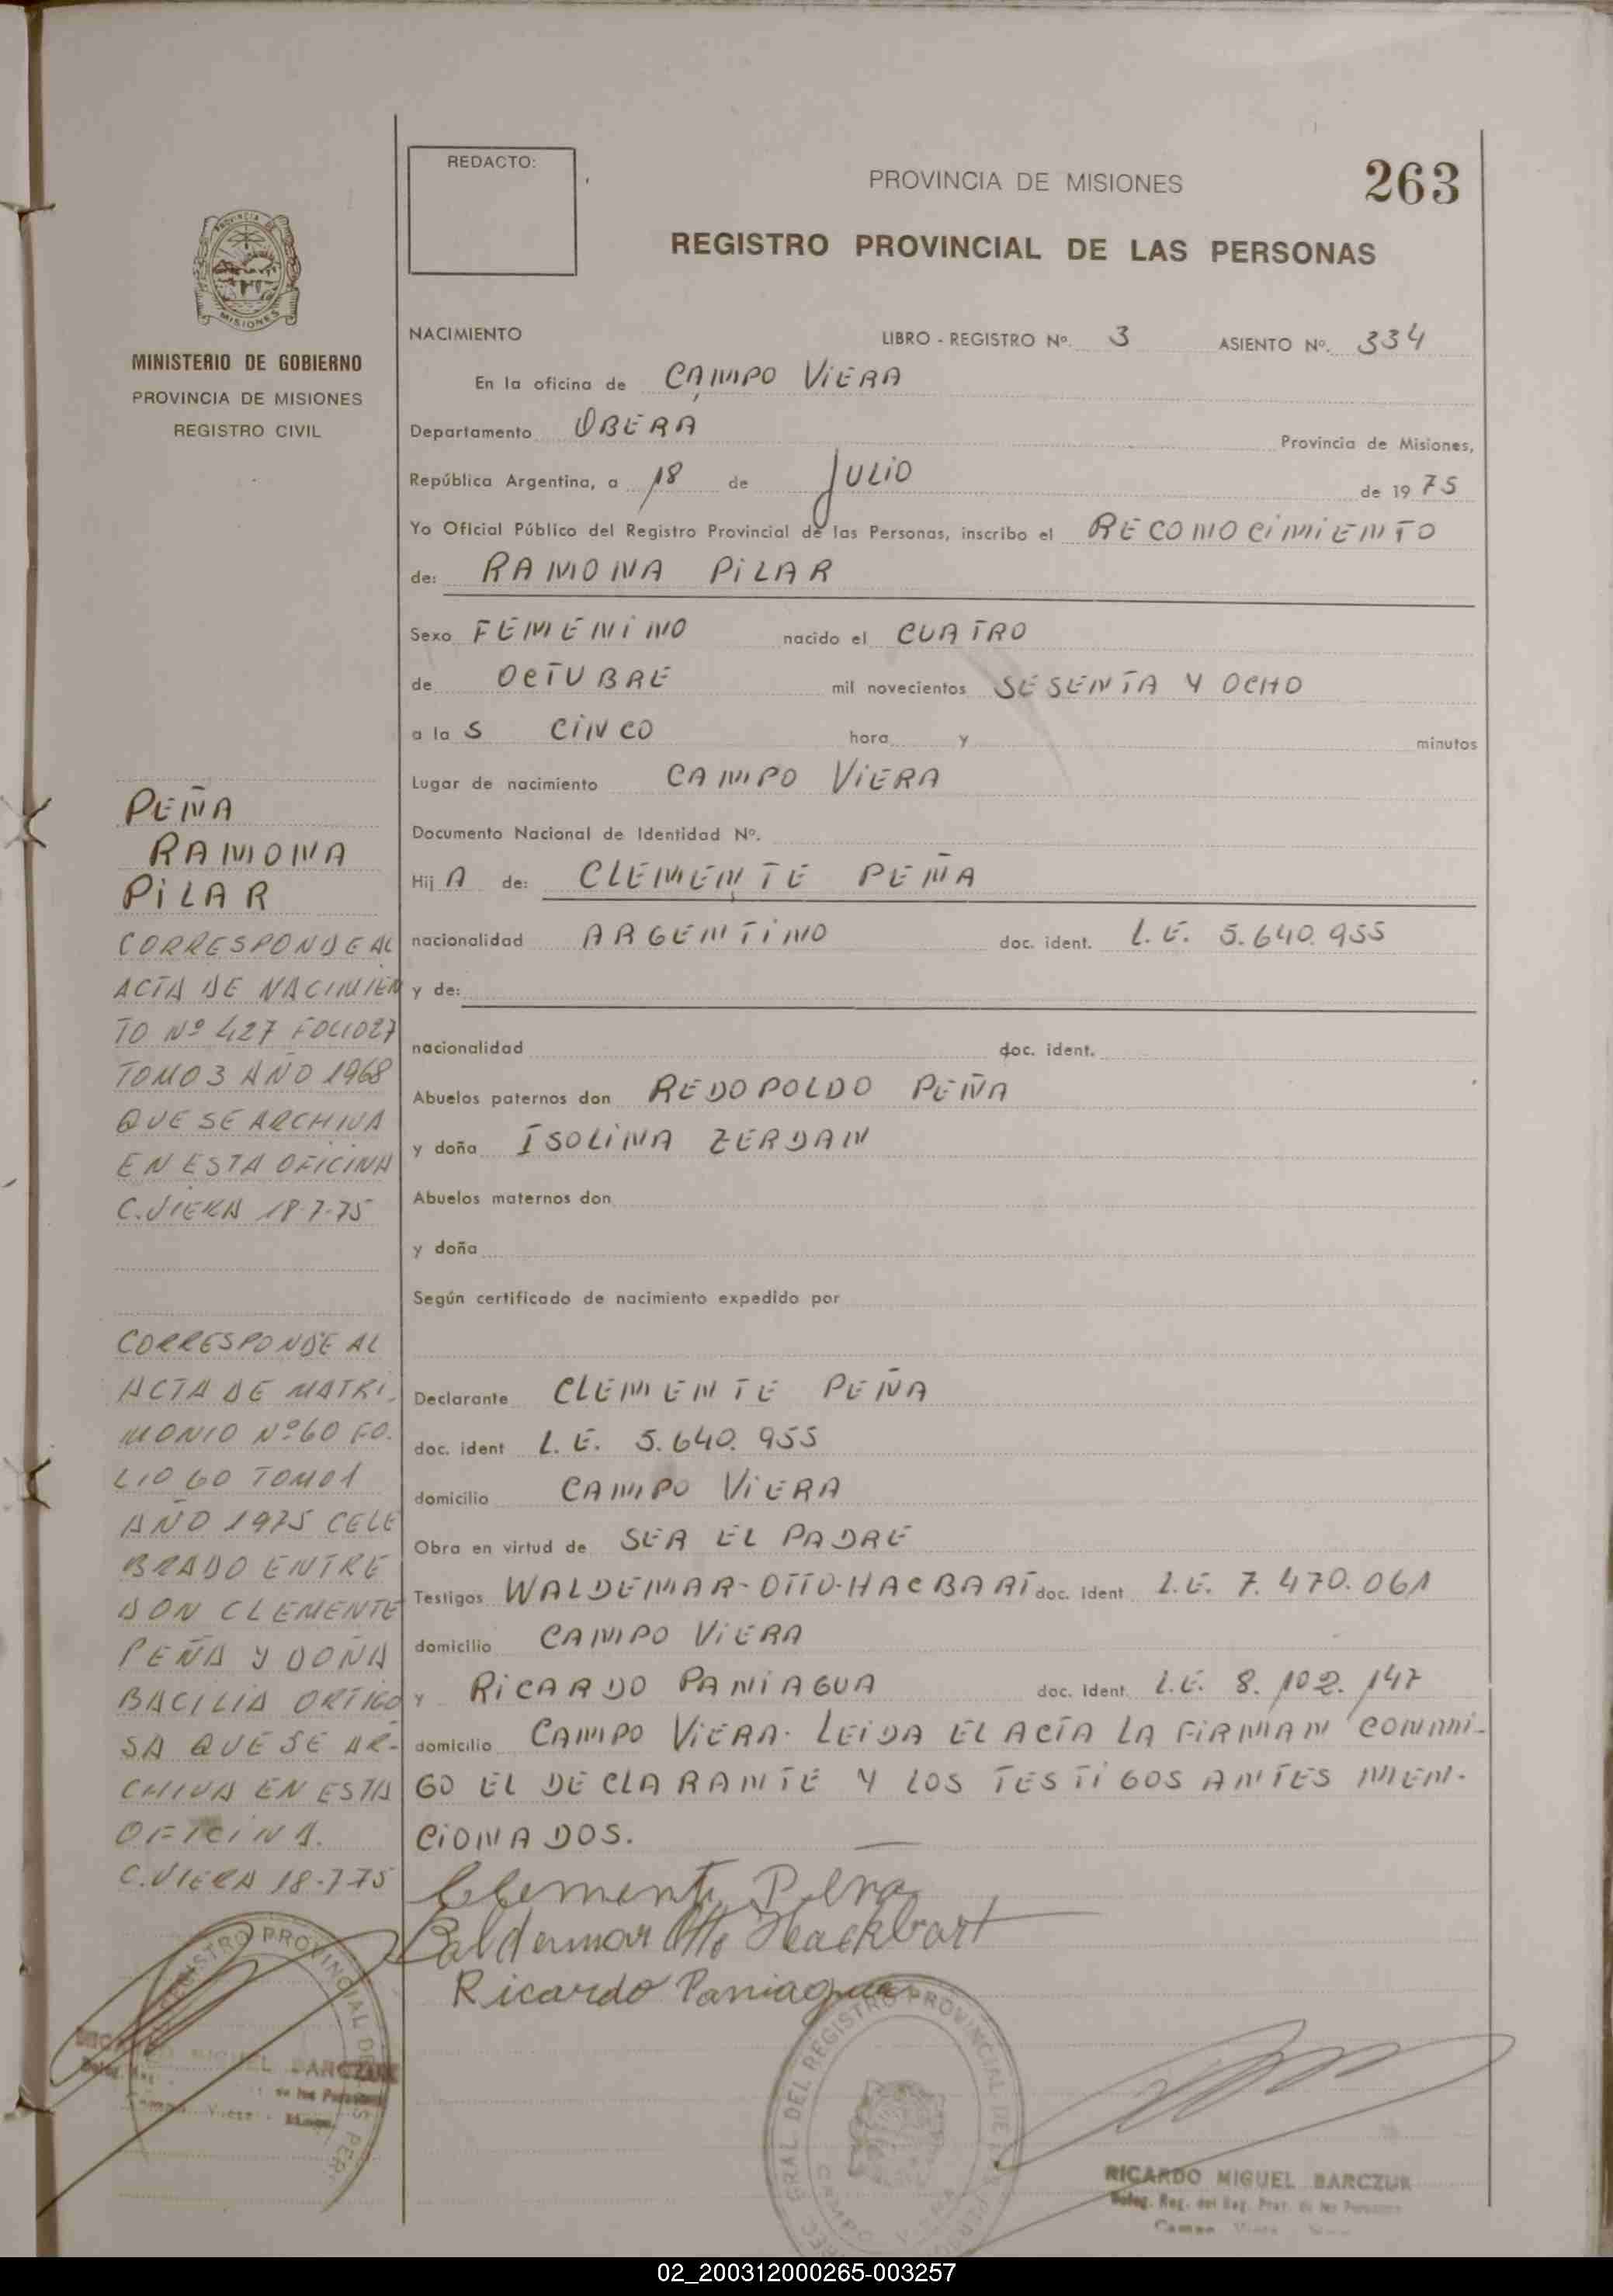 REDACTO:
PROVINCIA DE MISIONES
263
REGISTRO PROVINCIAL DE LAS PERSONAS
MISIONES
MINISTERIO DE GOBIERNO
PROVINCIA DE MISIONES
REGISTRO CIVIL
NACIMIENTO LIBRO - REGISTRO Nº. 3 ASIENTO Nº. 334
En la oficina de CAMPO VIERA
Departamento OBERA Provincia de Misiones,
República Argentina, a 18 de JULIO de 1975
Yo Oficial Público del Registro Provincial de las Personas, inscribo el RECONOCIMIENTO
de: RAMONA PILAR
Sexo FEMENINO nacido el CUATRO
de OCTUBRE mil novecientos SESENTA Y OCHO
a la S CINCO hora y minutos
Lugar de nacimiento CAMPO VIERA
Documento Nacional de Identidad Nº.
Hij A de: CLEMENTE PEÑA
nacionalidad ARGENTINO doc. ident. L.E. 5.640.955
y de:
nacionalidad doc. ident.
Abuelos paternos don REDOPOLDO PEÑA
y doña ISOLINA ZERDAN
Abuelos maternos don
y doña
Según certificado de nacimiento expedido por
Declarante CLEMENTE PEÑA
doc. ident L.E. 5.640.955
domicilio CAMPO VIERA
Obra en virtud de SER EL PADRE
Testigos WALDEMAR-OTTO-HACBART doc. ident L.E. 7.470.061
domicilio CAMPO VIERA
y RICARDO PANIAGUA doc. ident. L.E. 8.102.147
domicilio CAMPO VIERA. LEIDA EL ACTA LA FIRMAN CONMI-
GO EL DECLARANTE Y LOS TESTIGOS ANTES MEN-
CIONADOS.
Clemente Peña
Baldemar Otto Hackbart
Ricardo Paniagua
PEÑA
RAMONA
PILAR
CORRESPONDE AL
ACTA DE NACIMIEN
TO Nº 427 FOLIO27
TOMO 3 AÑO 1968
QUE SE ARCHIVA
EN ESTA OFICINA
C.VIERA 18-7-75
CORRESPONDE AL
ACTA DE MATRI-
MONIO Nº60 FO-
LIO 60 TOMO1
AÑO 1975 CELE
BRADO ENTRE
DON CLEMENTE
PEÑA Y DOÑA
BACILIA ORTIGO
SA QUE SE AR-
CHIVA EN ESTA
OFICINA.
C.VIERA 18-7-75
REGISTRO PROVINCIAL DE
MIGUEL BARCZUK
de las Personas
Campo Viera
GRAL DEL REGISTRO PROVINCIAL DE LAS PERS
CAMPO VIERA
RICARDO MIGUEL BARCZUK
Deleg. Reg. del Reg. Prov. de las Personas
Campo Viera
02_200312000265-003257